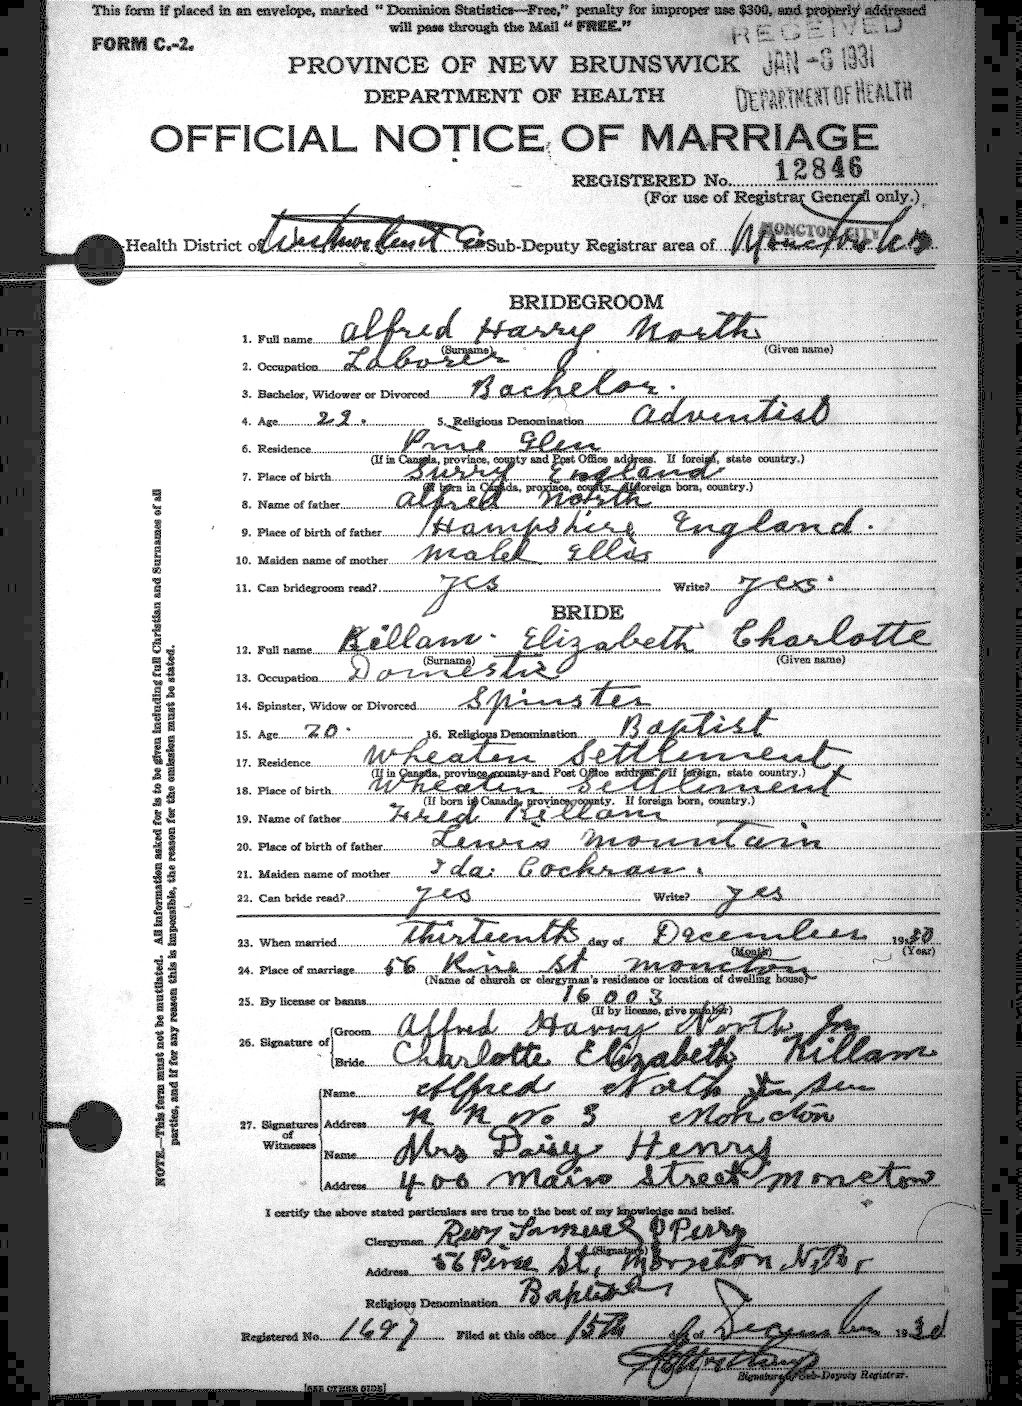 This form if placed in an envelope, marked "Dominion Statistics—Free," penalty for improper use $300, and properly addressed
will pass through the Mail "FREE."
FORM C.-2.
RECEIVED
JAN -6 1931
DEPARTMENT OF HEALTH
PROVINCE OF NEW BRUNSWICK
DEPARTMENT OF HEALTH
OFFICIAL NOTICE OF MARRIAGE
REGISTERED No. 12846
(For use of Registrar General only.)
Health District of Westmorland Co Sub-Deputy Registrar area of Moncton
MONCTON CITY
BRIDEGROOM
1. Full name Alfred Harry North
(Surname) (Given name)
2. Occupation Laborer
3. Bachelor, Widower or Divorced Bachelor.
4. Age 22. 5. Religious Denomination Adventist
6. Residence Pine Glen
(If in Canada, province, county and Post Office address. If foreign, state country.)
7. Place of birth Surry England
(If born in Canada, province, county. If foreign born, country.)
8. Name of father Alfred North
9. Place of birth of father Hampshire England.
10. Maiden name of mother Mabel Ellis
11. Can bridegroom read? yes Write? yes.
BRIDE
12. Full name Killam. Elizabeth Charlotte
(Surname) (Given name)
13. Occupation Domestic
14. Spinster, Widow or Divorced Spinster
15. Age 20. 16. Religious Denomination Baptist
17. Residence Wheaten Settlement
(If in Canada, province, county and Post Office address. If foreign, state country.)
18. Place of birth Wheaten Settlement
(If born in Canada, province, county. If foreign born, country.)
19. Name of father Fred Killam
20. Place of birth of father Lewis Mountain
21. Maiden name of mother Ida Cochran.
22. Can bride read? yes Write? yes
23. When married Thirteenth day of December 1930
(Month) (Year)
24. Place of marriage 56 Pine St Moncton
(Name of church or clergyman's residence or location of dwelling house)
25. By license or banns 16003
(If by license, give number)
26. Signature of Groom Alfred Harry North Jr
Bride Charlotte Elizabeth Killam
27. Signatures of Witnesses
Name Alfred North Sen
Address R R No 3 Moncton
Name Mrs Daisy Henry
Address 400 Main Street Moncton
I certify the above stated particulars are true to the best of my knowledge and belief.
Clergyman Rev Samuel J Perry
(Signature)
Address 56 Pine St, Moncton N.B.
Religious Denomination Baptist
Registered No. 1697 Filed at this office 15th day of December 1930
Signature of Sub-Deputy Registrar.
[SEE OTHER SIDE]
NOTE.—This form must not be mutilated. All information asked for is to be given including full Christian and Surnames of all
parties, and if for any reason this is impossible, the reason for the omission must be stated.